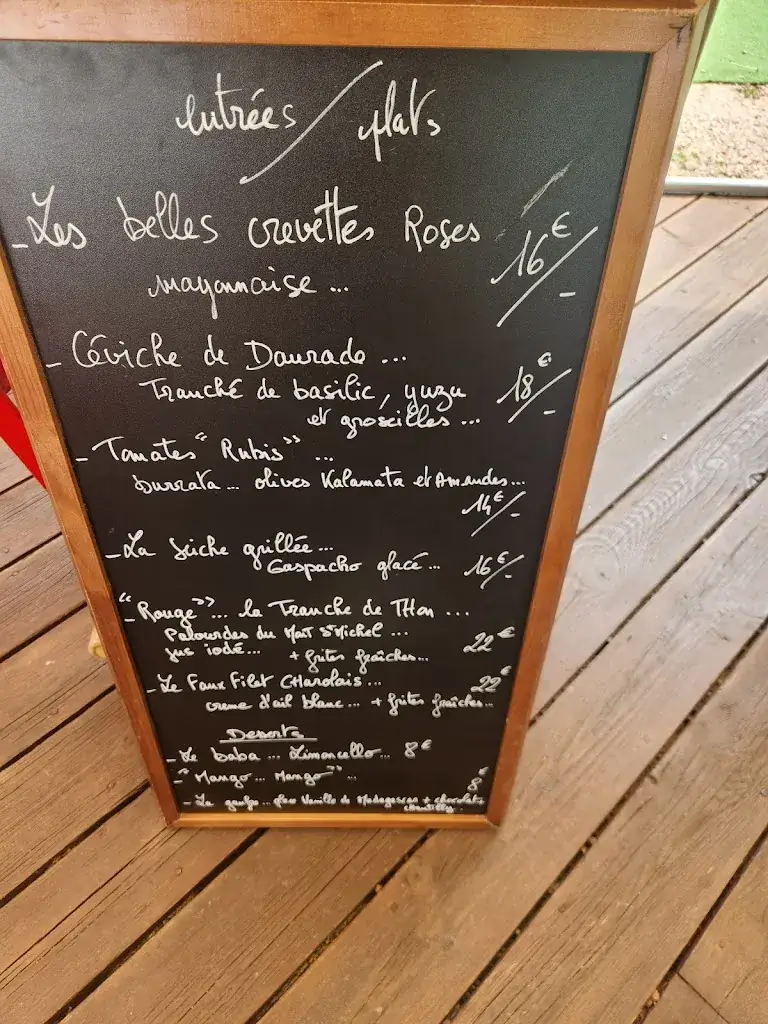 entrées / plats
- Les belles crevettes Roses 16€/-
mayonnaise ...
- Céviche de Daurade ...
Tranché de basilic, yuzu 18€/-
et groseilles ...
- Tomates "Rubis" ...
burrata ... olives Kalamata et Amandes...
14€/-
- La seiche grillée ...
Gaspacho glacé ... 16€/-
- "Rouge" ... la Tranche de THon ...
Palourdes du Mont St Michel ... 22€
jus iodé... + frites fraîches...
- Le Faux Filet CHarolais ... 22€
creme d'ail blanc ... + frites fraîches...
Deserts
- Le baba ... Limoncello ... 8€
- "Mango ... Mango" ... 8€
- La gaufre ... glace Vanille de Madagascar + chocolat
chantilly.